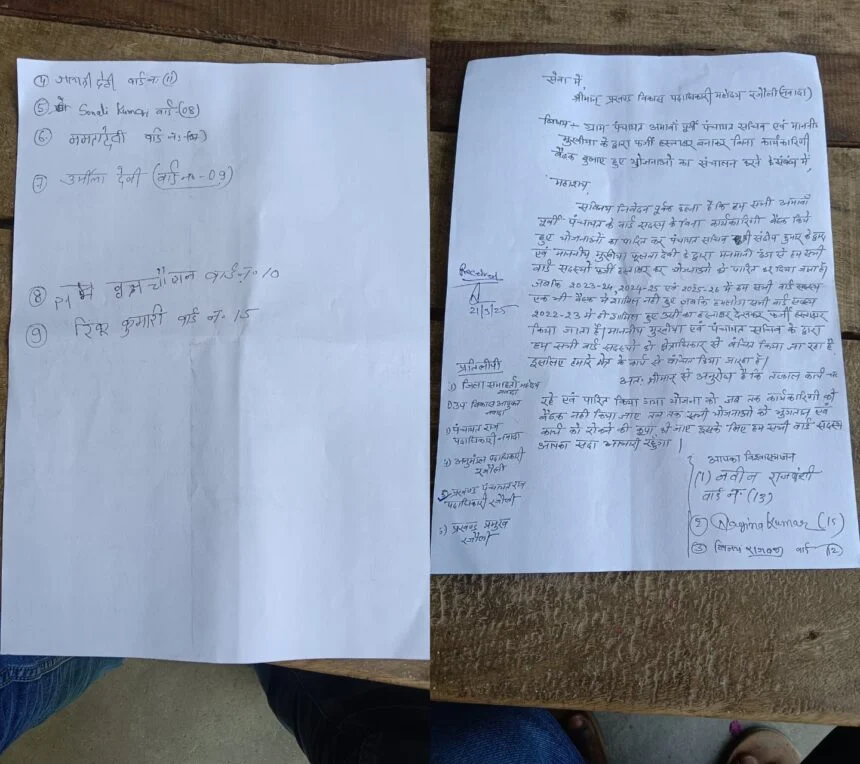 सेवा में,
श्रीमान् प्रखण्ड विकास पदाधिकारी महोदय रजौली (नवादा)
विषय - ग्राम पंचायत अमावाँ पूर्वी पंचायत सचिव एवं माननीय
मुखीया के द्वारा फर्जी हस्ताक्षर बनाकर बिना कार्यकारिणी
बैठक बुलाए हुए योजनाओं का संचालन करने के संबंध में,
महाशय,
सविनय निवेदन पूर्वक कहना है कि हम सभी अमावाँ
पूर्वी पंचायत के वार्ड सदस्य के बिना कार्यकारिणी बैठक किये
हुए योजनाओं का पारित कर पंचायत सचिव श्री संदीप कुमार के द्वारा
एवं माननीय मुखीया फूलवा देवी के द्वारा मनमानी ढंग से हम सभी
वार्ड सदस्यो फर्जी हस्ताक्षर कर योजनाओ को पारित कर दिया गया है।
जबकि 2023-24, 2024-25 एवं 2025-26 में हम सभी वार्ड सदस्य
एक भी बैठक में शामिल नही हुए जबकि हमलोग सभी वार्ड सदस्य
2022-23 में ही शामिल हुए उसी का हस्ताक्षर देखकर फर्जी हस्ताक्षर
किया जाता है। माननीय मुखीया एवं पंचायत सचिव के द्वारा
हम सभी वार्ड सदस्यो को क्षेत्राधिकार से वंचित किया जा रहा है
इसलिए हमारे क्षेत्र के कार्य से वंचित किया जा रहा है।
अतः श्रीमान् से अनुरोध है कि तत्काल कार्य चल
रहे एवं पारित किया गया योजना को जब तक कार्यकारिणी की
बैठक नही किया जाए तब तक सभी योजनाओं को भुगतान एवं
कार्य को रोकने की कृपा की जाए इसके लिए हम सभी वार्ड सदस्य
आपका सदा आभारी रहूँगा।
Received
21/3/25
प्रतिलीपी
1) जिला समाहर्ता महोदय
नवादा
उप विकास आयुक्त
नवादा
पंचायत राज
पदाधिकारी नवादा
अनुमंडल पदाधिकारी
रजौली
प्रखण्ड पंचायत राज
पदाधिकारी रजौली
प्रखण्ड प्रमुख
रजौली
आपका विश्वासभाजन
(1) नवीन राजवंशी
वार्ड नं (13)
(2) Nagina Kumar (15)
(3) वार्ड (12)
(4) देवी वार्ड नं (11)
5. Sonali Kumari वार्ड-(08)
6. ममता देवी वार्ड नं
7) उर्मीला देवी (वार्ड नं - 09)
(8) वार्ड नं 10
(9) रिंकू कुमारी वार्ड नं - 15